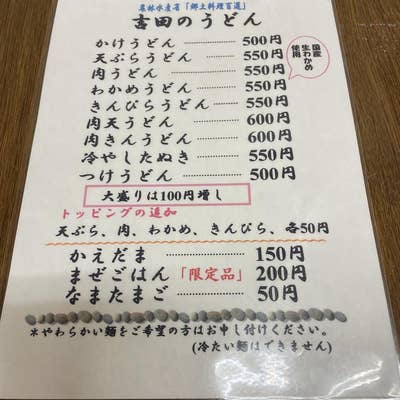 農林水産省「郷土料理百選」
吉田のうどん
かけうどん 500円
天ぷらうどん 550円
肉うどん 550円
わかめうどん 550円
きんぴらうどん 550円
肉天うどん 600円
肉きんうどん 600円
冷やしたぬき 550円
つけうどん 500円
国産
生わかめ
使用
大盛りは100円増し
トッピングの追加
天ぷら、肉、わかめ、きんぴら、各50円
かえだま 150円
まぜごはん「限定品」200円
なまたまご 50円
*やわらかい麺をご希望の方はお申し付けください。
(冷たい麺はできません)